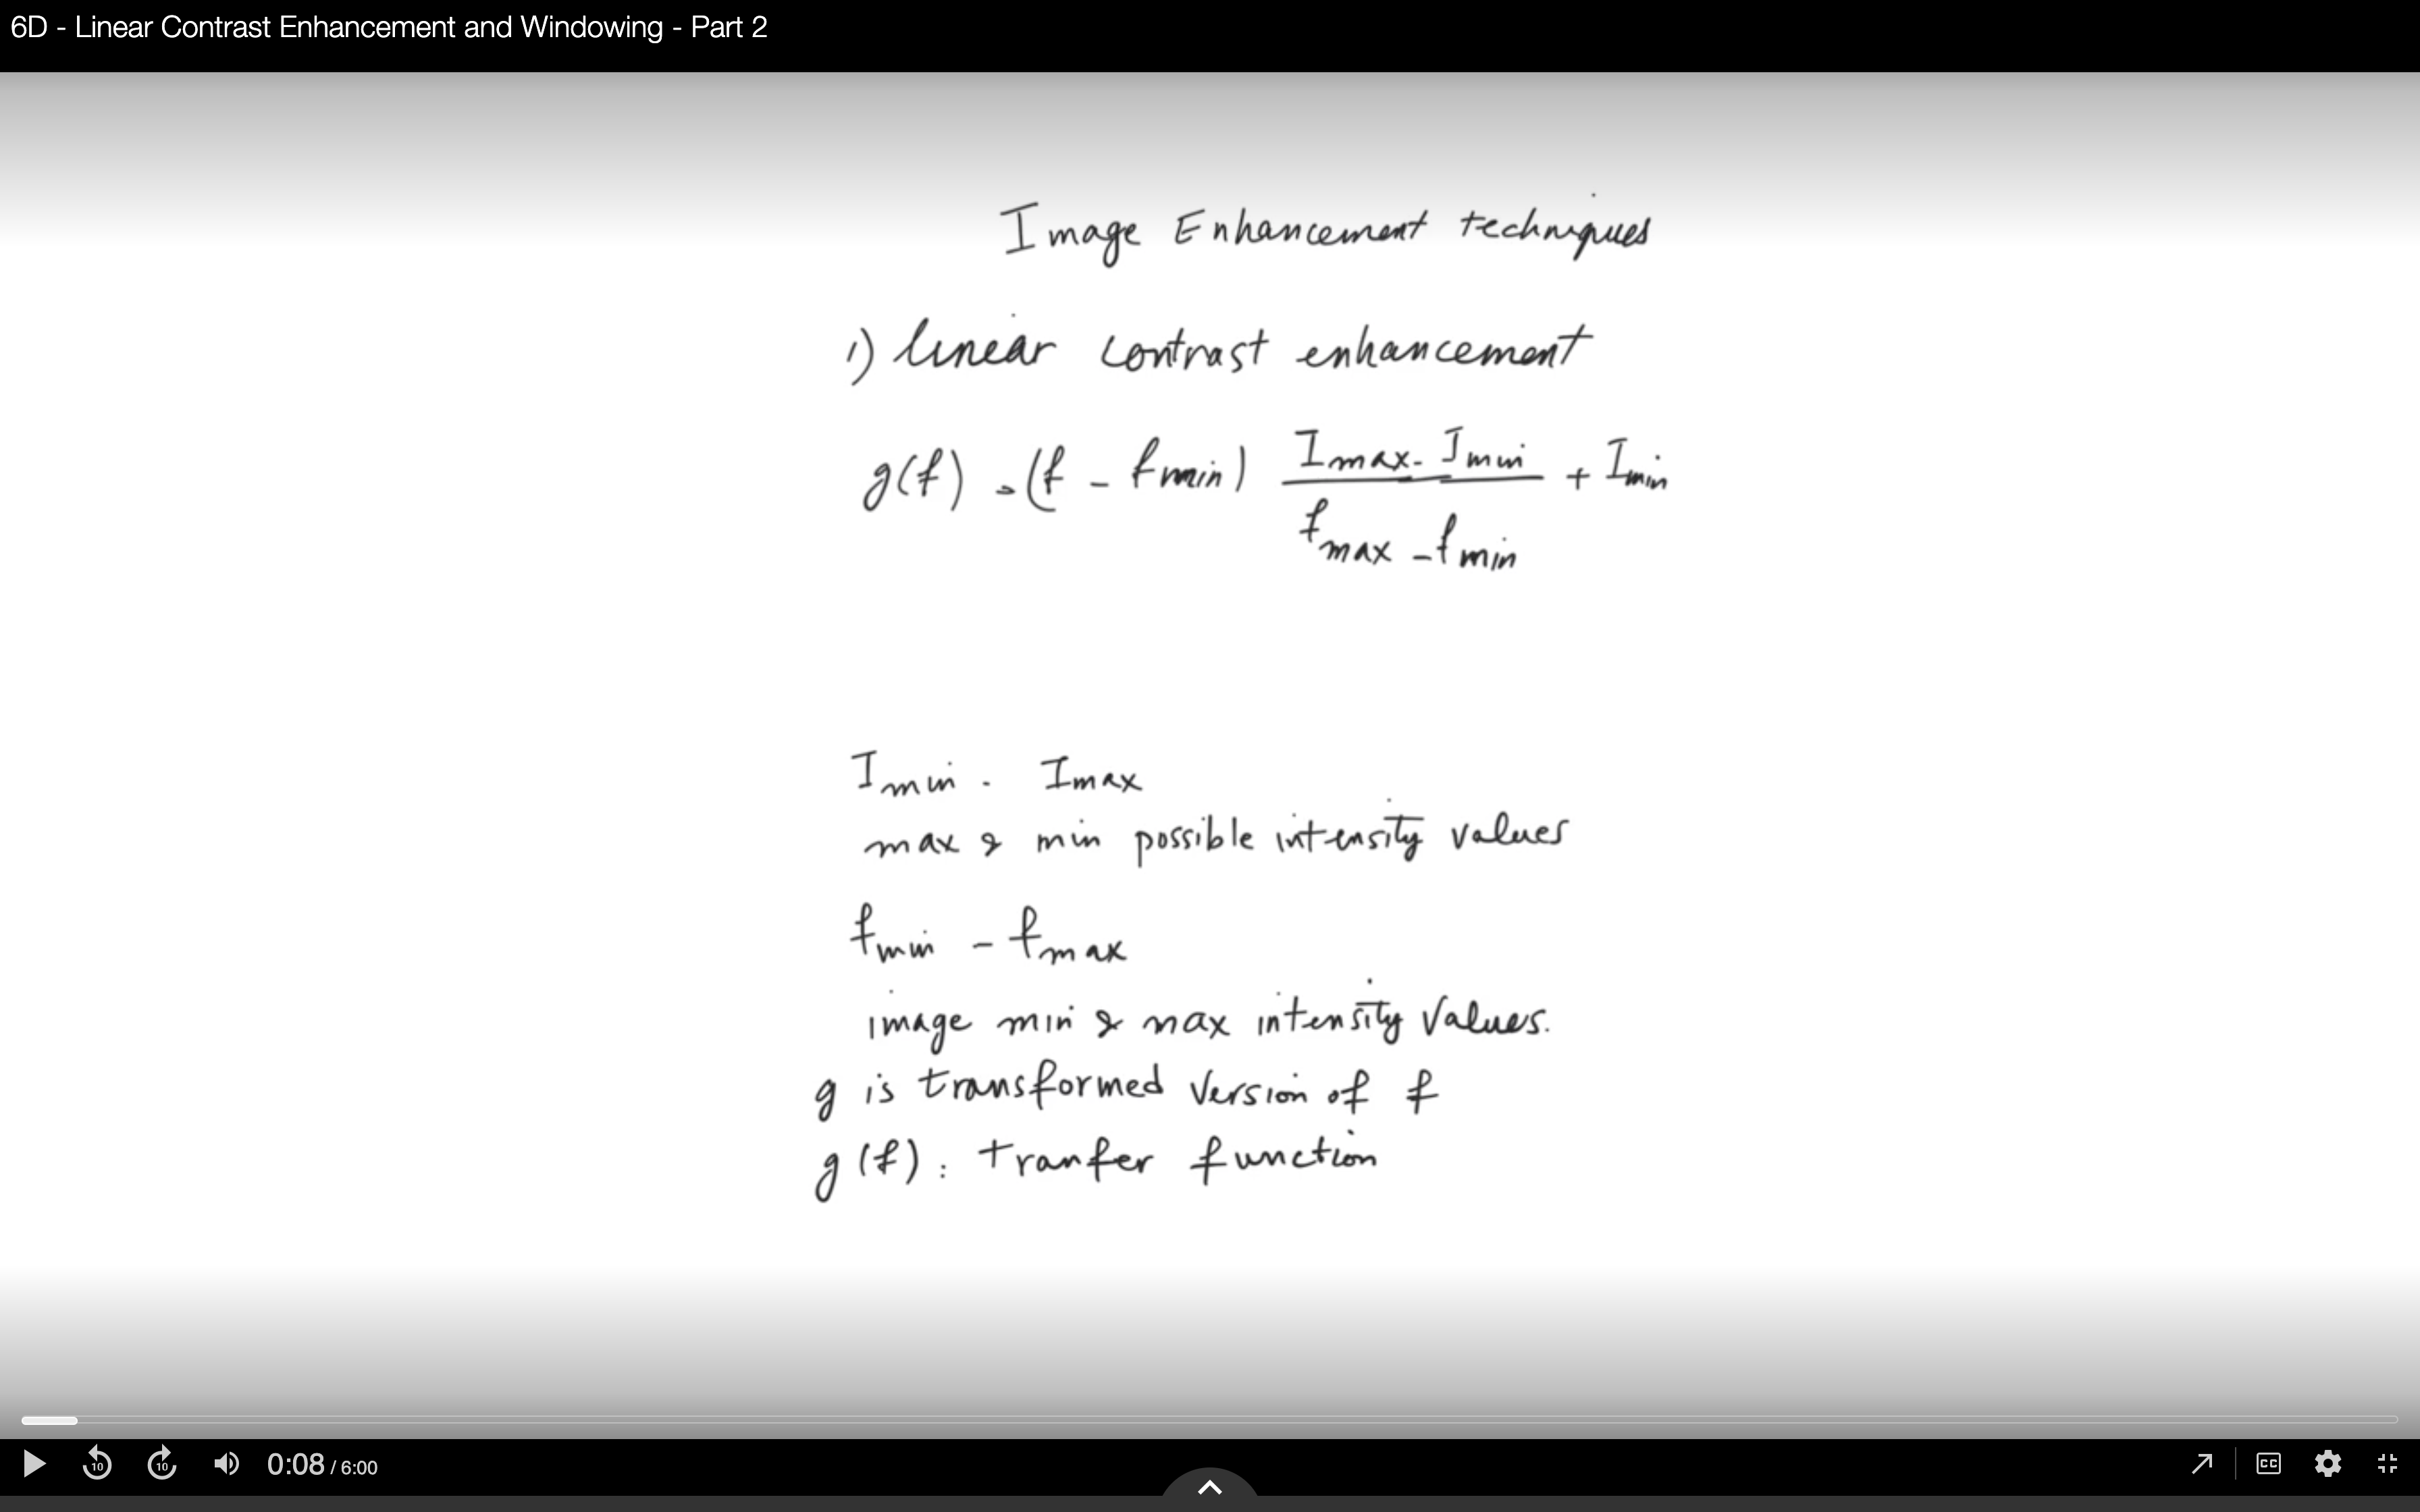 6D - Linear Contrast Enhancement and Windowing - Part 2
Image Enhancement techniques
1) linear contrast enhancement
g(f) = (f - fmin) (Imax - Imin)/(fmax - fmin) + Imin
Imin - Imax
max & min possible intensity values
fmin - fmax
image min & max intensity values.
g is transformed version of f
g(f): tranfer function
10 10 0:08 / 6:00 CC